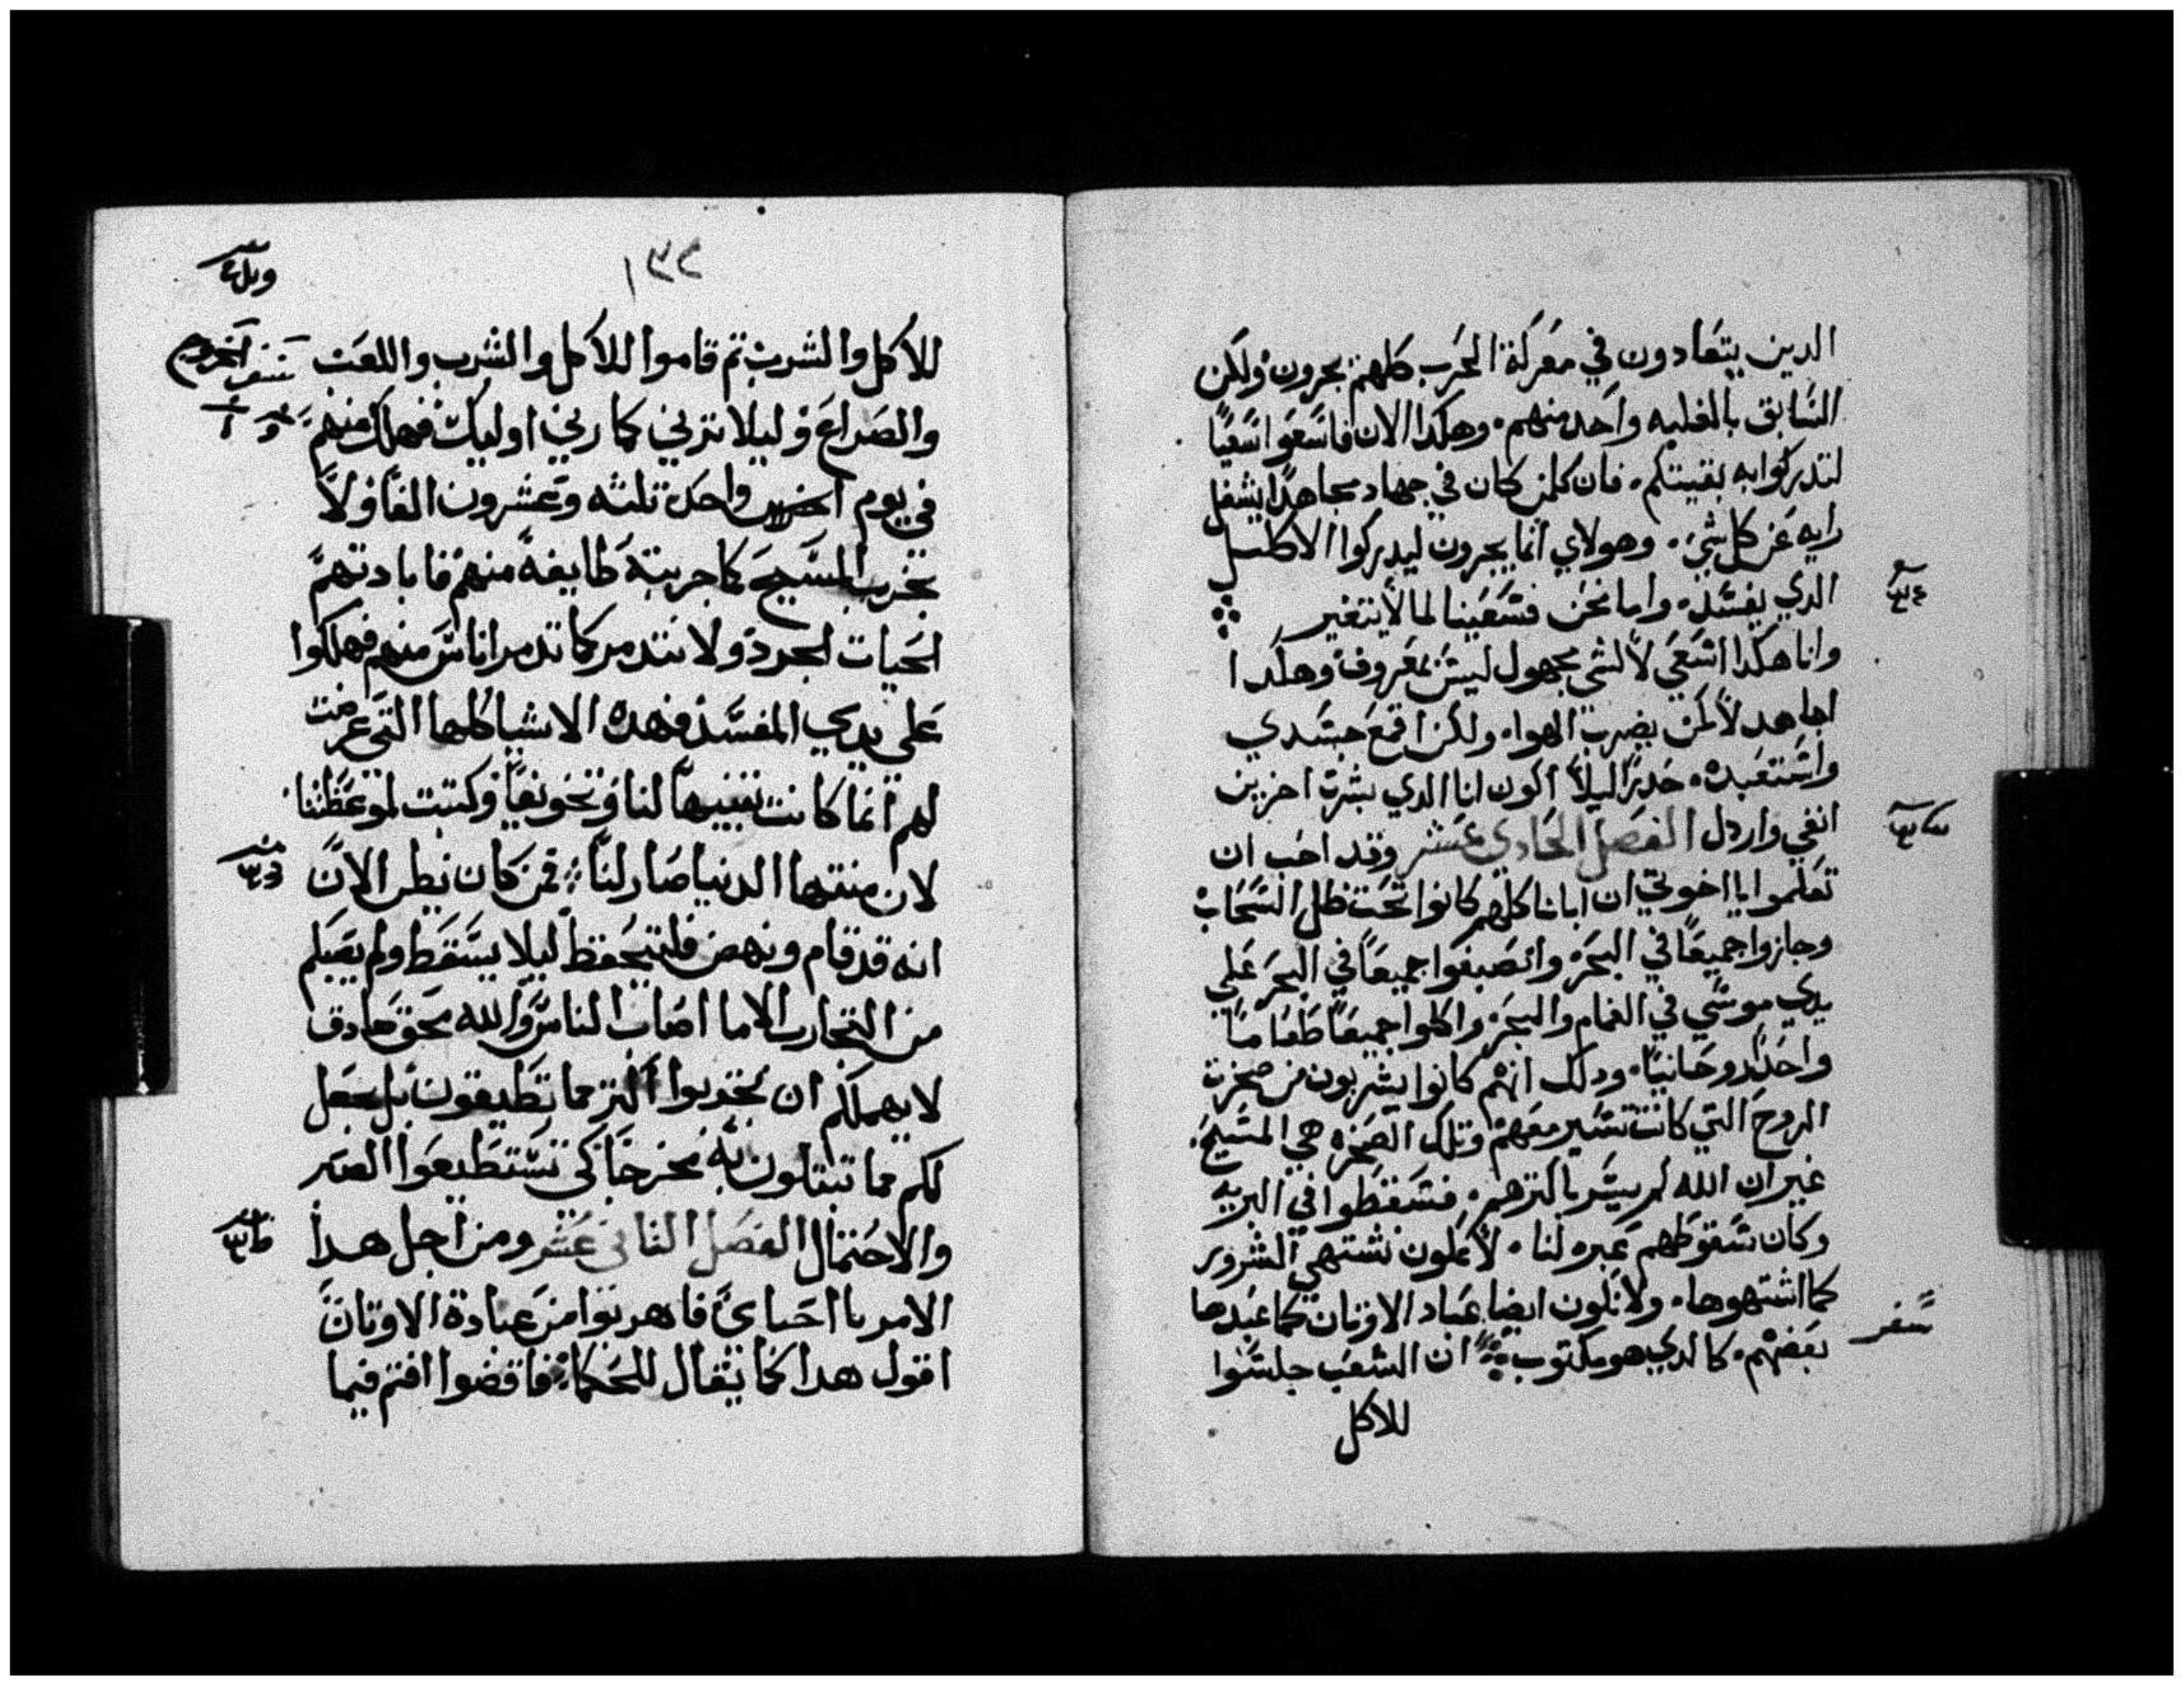 الدين يتعادون في معركة الحرب كلهم يجرون ولكن
السابق بالغلبه واحد منهم وهكدا الان فاسعوا سعيًا
لتدركوا به بقيتكم فان كلمن كان في جهاد مجاهدًا يشغل
رايه عن كل شي وهولاي انما يجرون ليدركوا الاكليل
الدي يفسد واما نحن فسعينا لما لا يتغير
وانا هكدا اسعي لا لشي مجهول ليس بمعروف وهكدا
اجاهد لا كمن يضرب الهوا ولكن اقمع جسدي
واستعبده حدرًا ليلا اكون انا الدي بشرت اخرين
انفي واردل الفصل الحادي عشر وقد احب ان
تعلموا يااخوتي ان ابانا كلهم كانوا تحت ظل السحاب
وجازوا جميعًا في البحر وانصبغوا جميعًا في البحر علي
يدي موسي في الغمام والبحر واكلوا جميعًا طعامًا
واحدًا روحانيًا ودلك انهم كانوا يشربون من صخرت
الروح التي كانت تسير معهم وتلك الصخره هي المسيح
غير ان الله لم يسر باكترهم فسقطوا في البريه
وكان سقوطهم عبره لنا لا نكون نشتهي الشرور
كما اشتهوها ولا نكون ايضا عباد الاوتان كما عبدها
بعضهم كالدي هو مكتوب ان الشعب جلسوا
سفر
للاكل
١٣٢
للاكل والشرب تم قاموا للاكل والشرب واللعب
سفر الخروج
والصراع وليلا نزني كما زني اوليك فهلك منهم
في يوم واحد تلته وعشرون الفًا ولا
نجرب المسيح كما جربته طايفة منهم فابادتهم
الحيات الجرد ولا نتدمر كما تدمر اناس منهم فهلكوا
علي يدي المفسد فهده الاشيا كلها التي عرضت
لهم انما كانت تنبيهًا لنا وتخويفًا وكتبت لموعظتنا
لان منتها الدنيا صار لنا فمن كان يظن الان
انه قد قام ونهض فليتحفظ ليلا يسقط ولم يصبكم
من التجارب الا ما اصاب الناس والله محق صادق
لا يهملكم ان تجربوا اكتر مما تطيقون بل يجعل
لكم مما تبتلون به مخرجًا كي تستطيعوا الصبر
والاحتمال الفصل التاني عشر ومن اجل هدا
الامر يا احباي فاهربوا من عبادة الاوتان
اقول هدا كما يقال للحكما فاقضوا انتم فيما